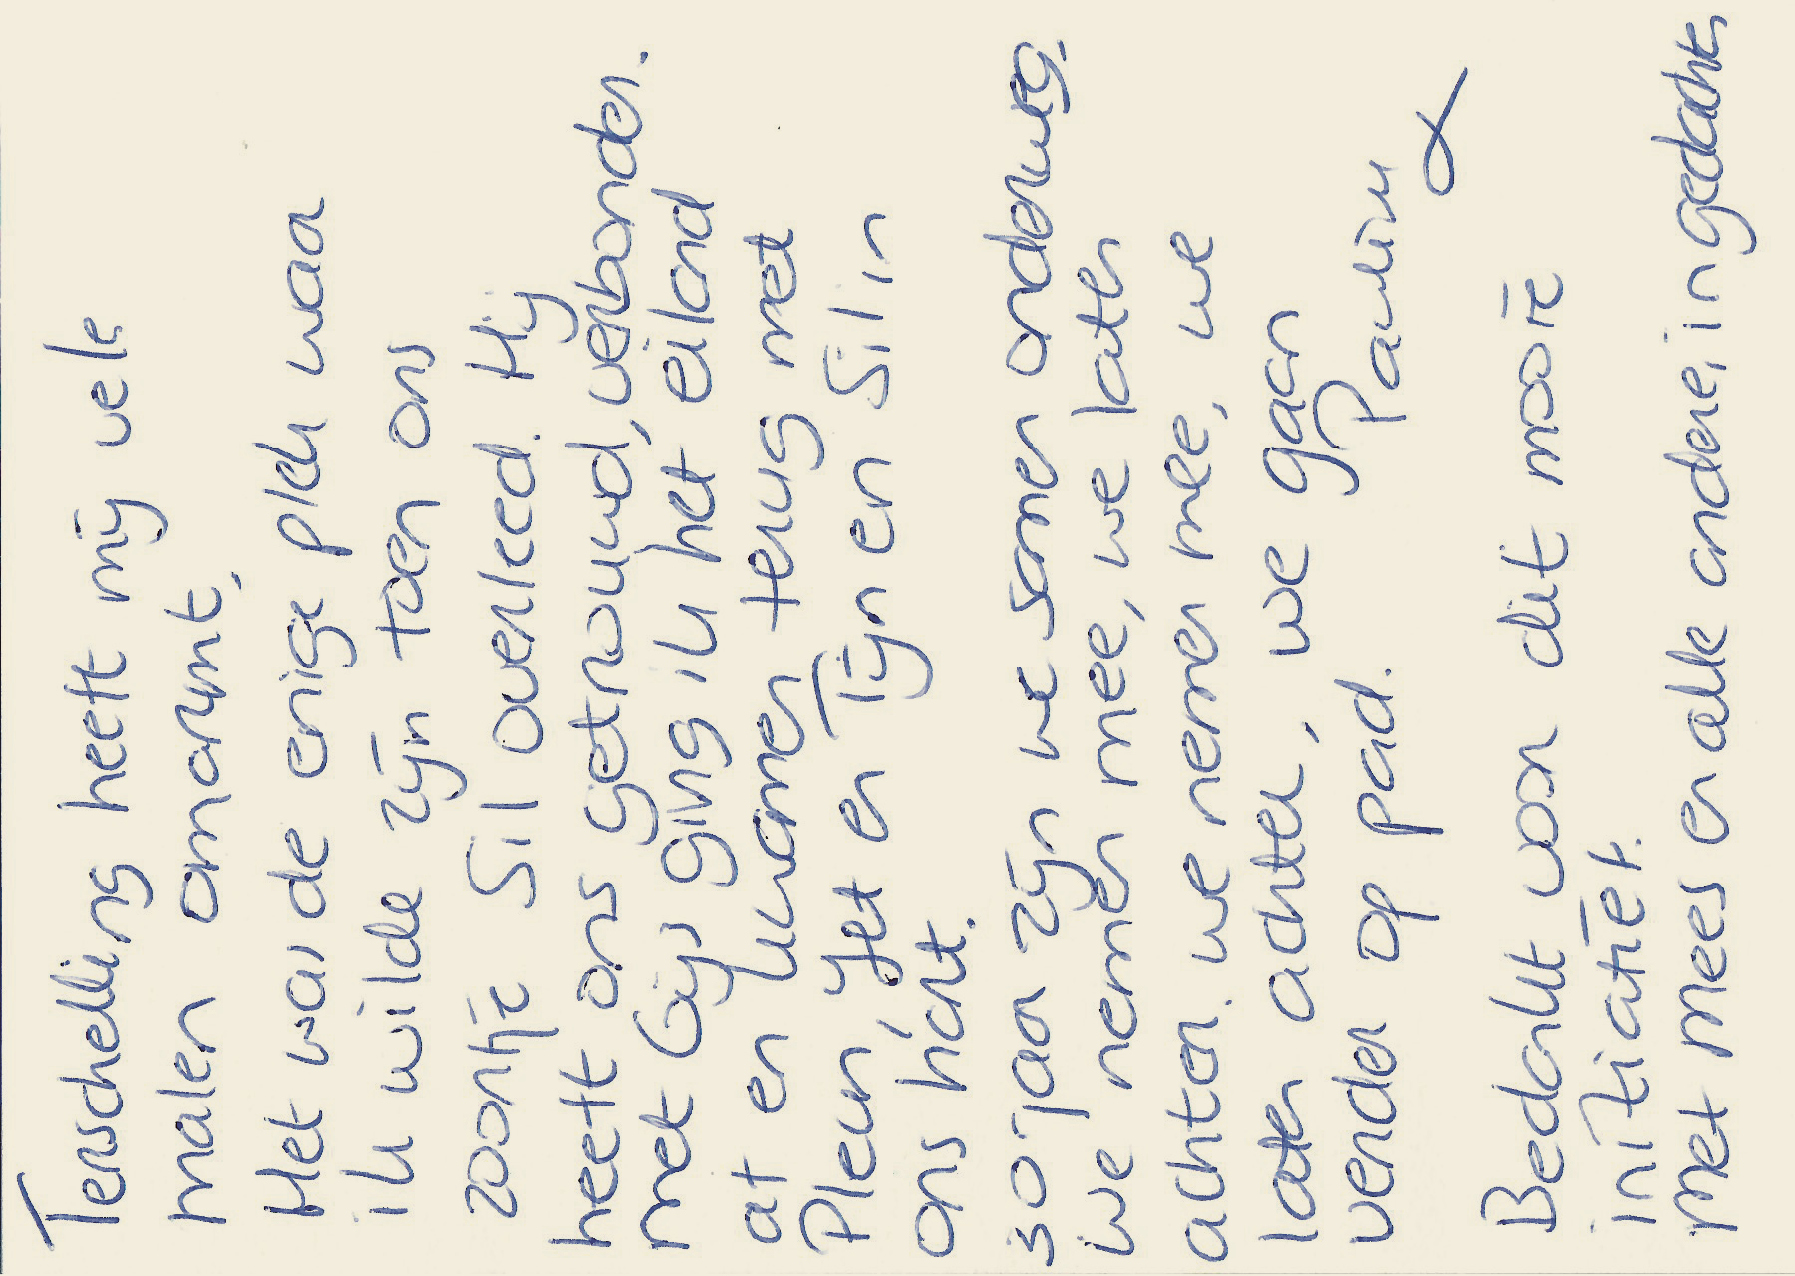 Terschelling heeft mij vele
malen omarmt,
Het was de enige plek waar
ik wilde zijn toen ons
zoontje Sil overleed. Hij
heeft ons getrouwd, verbonden.
met Gijs ging ik het eiland
af en kwamen terug met
Pleun, Jet en Tijn en Sil in
ons hart.
30 jaar zijn we samen onderweg.
we nemen mee, we laten
achter. we nemen mee, we
laten achter, we gaan
verder op pad.
Pauline
x
Bedankt voor dit mooie
initiatief.
met mees en alle andere in gedachte